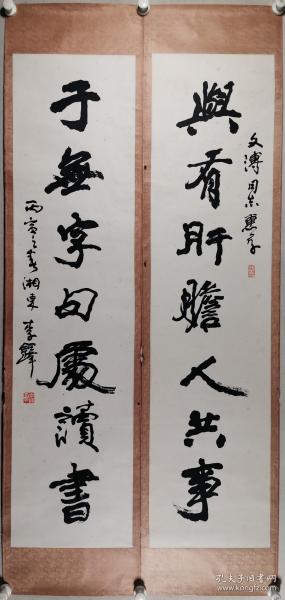 與有肝膽人共事
文溥同志惠存
于無字句處讀書
丙寅之春湘東李鐸
孔夫子旧书网
kongfz.com